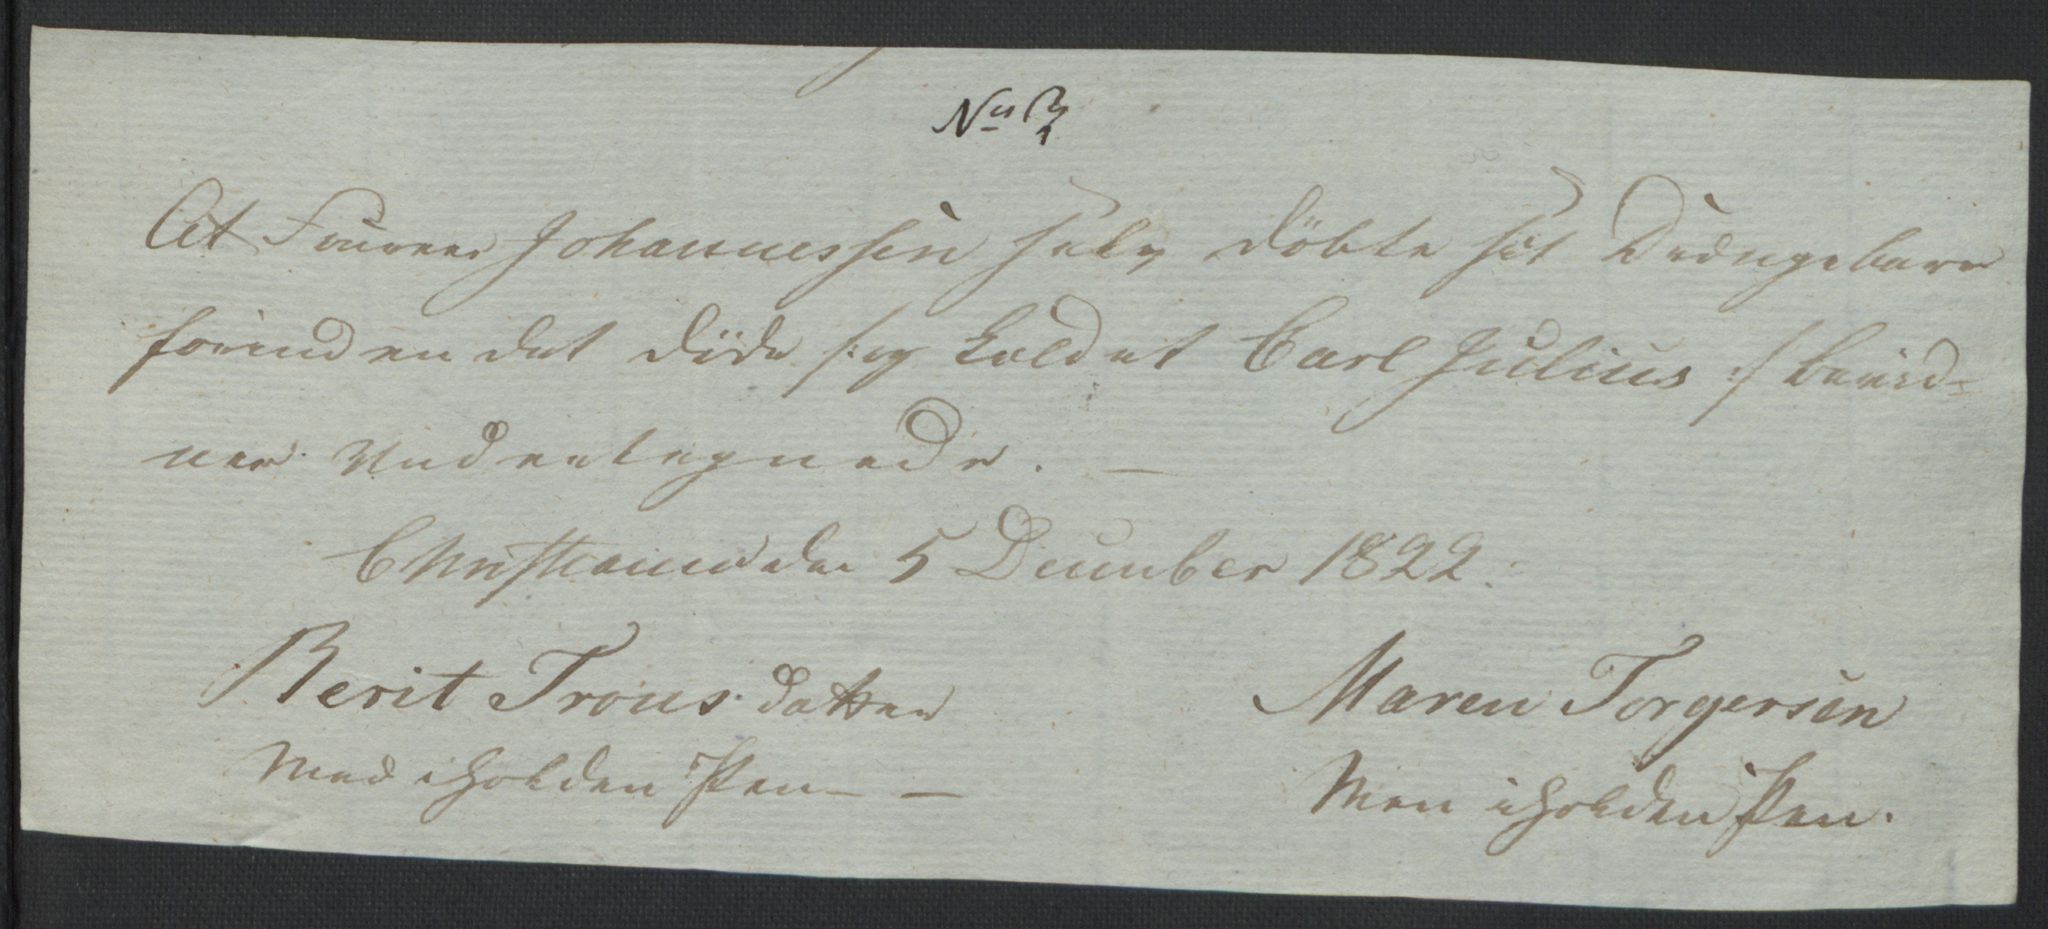 No 3
At Fourer Johannessen selv döbte sit Drengebarn
forinden det döde /: og kaldet Carl Julius :/ bevid-
ner Undertegnede. —
Christiania den 5 December 1822.
Berit Trons datter
Med iholden Pen — —
Maren Torgersen
Men iholden Pen.